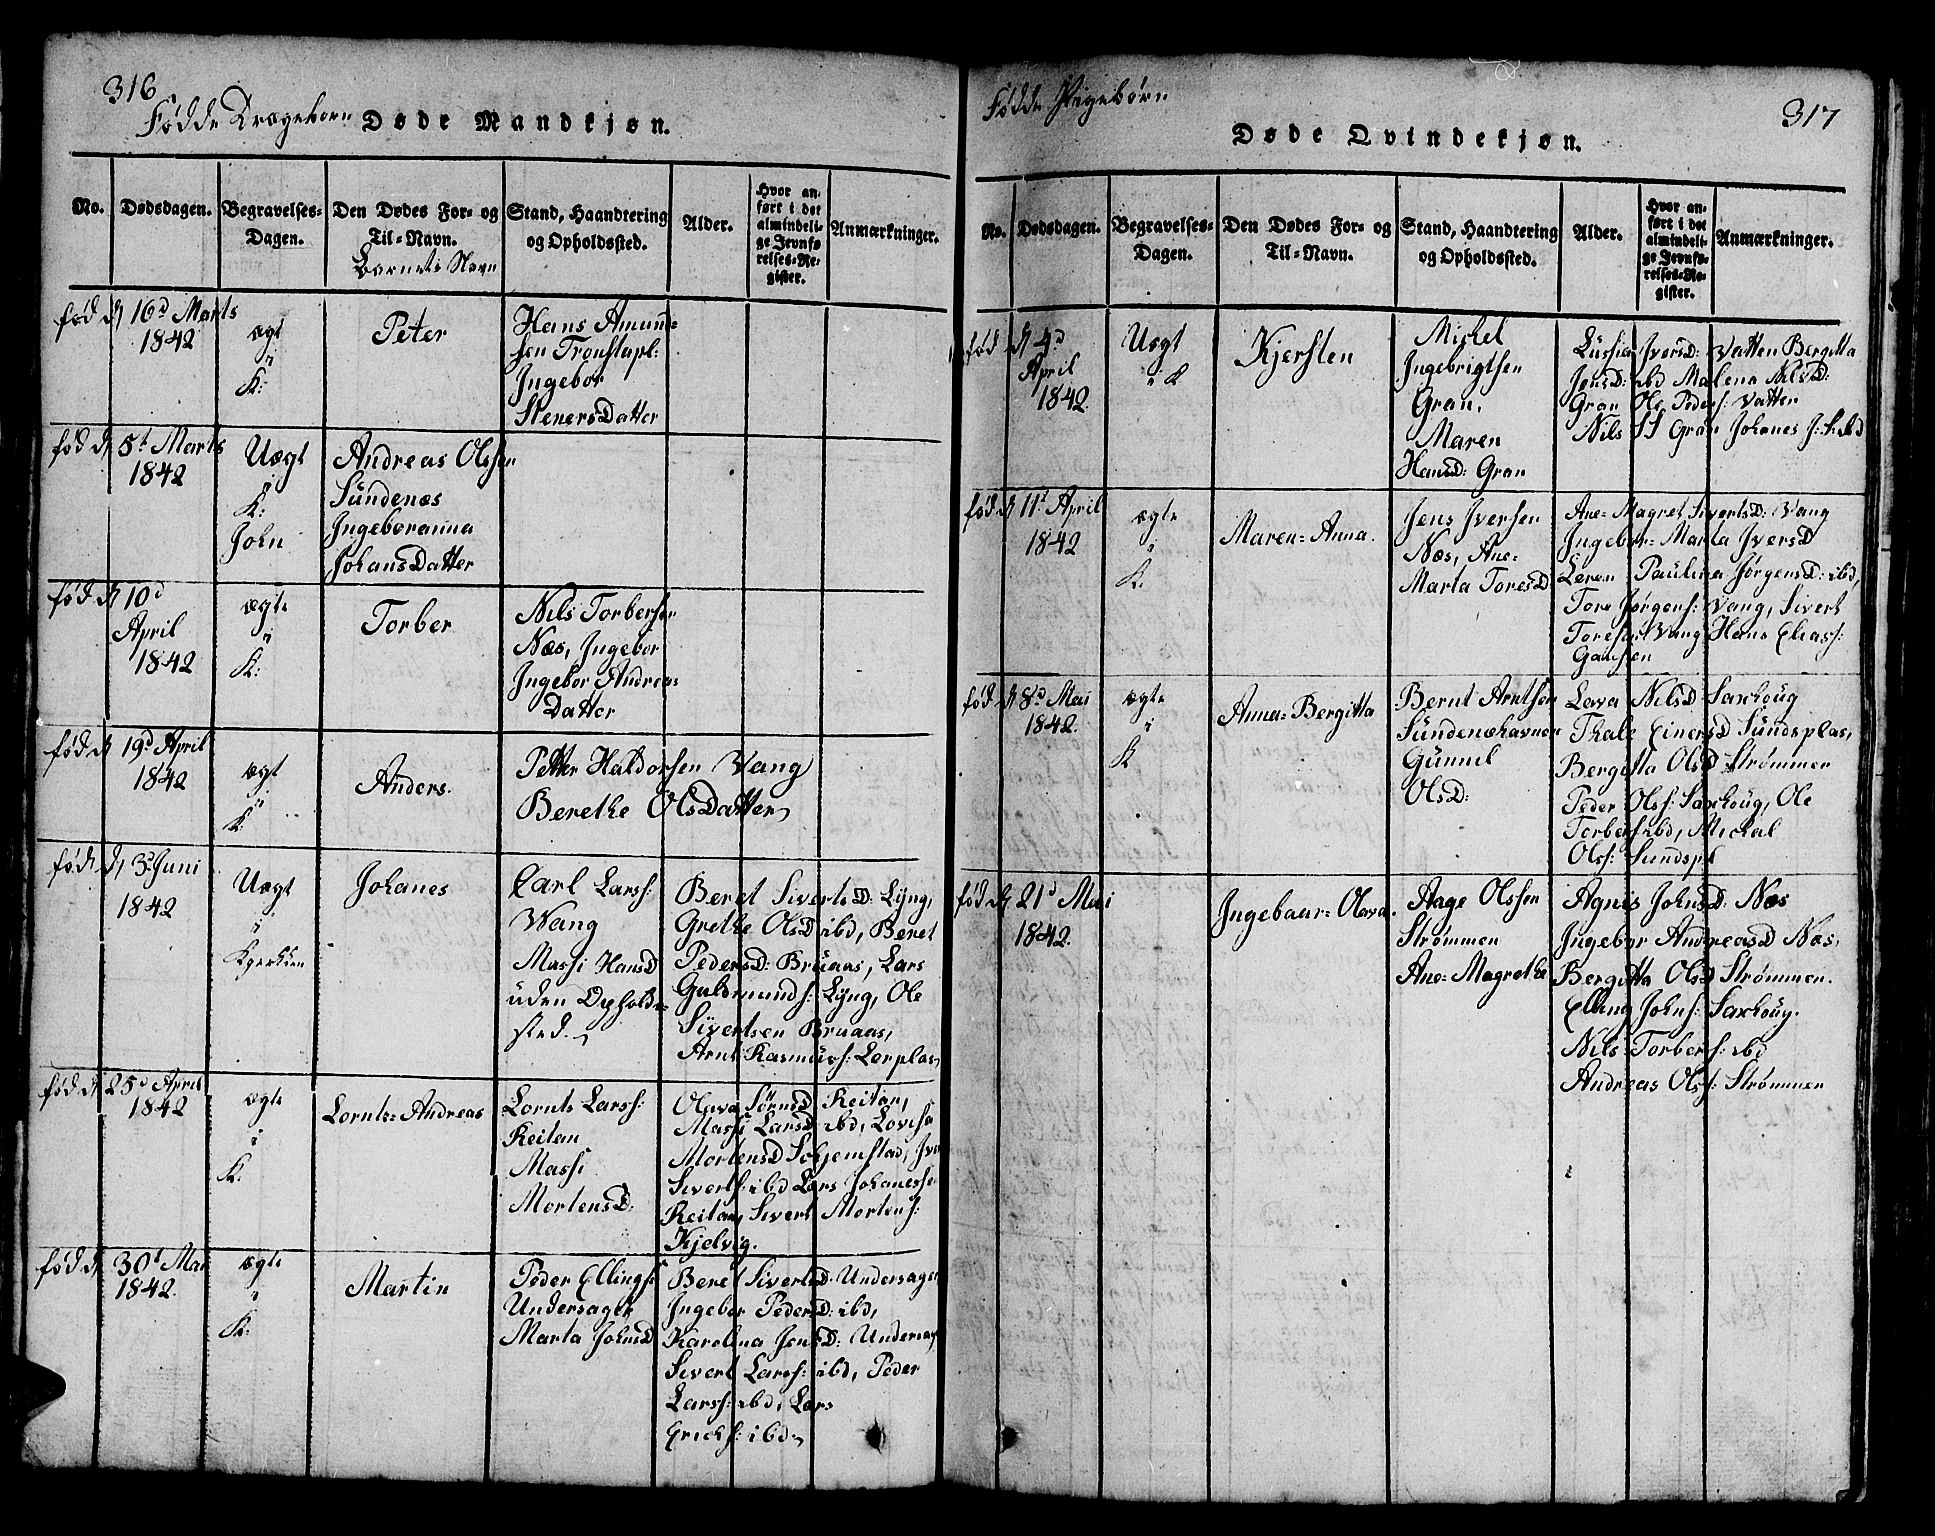 316
Fødde Drægeborn Døde Mandkjøn.
No. Dødsdagen. Begravelses-Dagen. Den Dødes For- og Til-Navn. Stand, Haandtering og Opholdssted. Alder. Hvor anført i det almindelige Jevnførelses-Register. Anmærkninger.
Barnets Navn
fød d 16d Marts
1842
ægt
i
K:
Peter
Hans Amund=
sen Tronstapl:
Ingebor
StenersDatter
fød d 5t Marts
1842
Uægt
i
K:
John
Andreas Olssen
Sundenæs
Ingeboranna
JohansDatter
fød d 10d
April
1842
ægte
i
K:
Torber
Nils Torbersen
Næs, Ingebor
Ingebor Andreas
Datter
fød d 19d April
1842
ægt
i
K:
Anders.
Petter Haldorsen Vang
Berethe OlsDatter
fød d, 3d Juni
1842
Uægt
i
Johanes
Carl Larss:
Wang
Massi HansD
uden Opholds=
sted.
Beret SivertsD: Lÿng,
Grethe OlsD ibd, Beret
PedersD: Bruaas, Lars
Guldmunds: Lÿng, Ole
Sivertsen Bruaas,
Arnt Rasmuss: Lerplas
fød d 25d April
1842
ægte
i
K:
Lornts=Andreas
Lornts Larss:
Reitan
Massi
MortensD:
Olava SørnsD Reitan,
Massi LarsD ibd, Lovisa
MortensD Soljemstad, Iver
Siverts: ibd Lars Johanesse
Reitan, Sivert Mortens:
Kjelvig.
fød d 30t Mai
1842.
ægte
i
K:
Martin
Peder Ellings:
Undersaget
Marta JohnsD
Beret SivertsD: Undersaget
Ingebor PedersD: ibd,
Karolina JensD: Undersag
Sivert Larss: ibd, Peder
Larss: ibd, Lars
Ericks: ibd,
Fødde Pigebørn
317
Døde Qvindekjøn.
No. Dødsdagen. Begravelses-Dagen. Den Dødes For- og Til-Navn. Stand, Haandtering og Opholdssted. Alder. Hvor anført i det almindelige Jevnførelses-Register. Anmærkninger.
fød d 4d
April
1842.
Uægt
i K
Kjersten
Michel
Ingebrigtsen
Gran,
Maren
HansD: Gran
Lussia IversD: Vatten Bergitta
JensD: ibd Malena NilsD:
Gran Ole Peders: Vatten
Nils Gran Johanes
fød d 11t April
1842
ægte
i
K.
Maren=Anna.
Jens Iversen
Næs, Ane=
Marta ToresD
Ane=Magret SivertsD: Vang
Ingebor=Marta IversD
Leren Paulina JørgensD: ibd,
Tore Jørgens: Vang, Sivert
Toresen Vang Hans Elias:
fød d 8d Mai
1842.
ægte
i
K
Anna=Bergitta
Bernt Arntsen
Sundenæhavnen
Gunnil
OlsD:
Lava NilsD Saxhoug
Thale EinersD Sundsplas,
Bergitta OlsD Strømmen
Peder Olss: Saxhoug, Ole
Torbers ibd, Michal
Olss: Sundspl
fød d 21d Mai
1842.
Ingebaar=Olava.
Aage Olssen
Strømmen
Ane=Magrethe
Agnis JohnsD: Næs
Ingebor AndreasD Næs,
Bergitta OlsD Strømmen.
Elling Johns: Saxhoug.
Nils Torbers: ibd
Andreas Olss: Strømmen